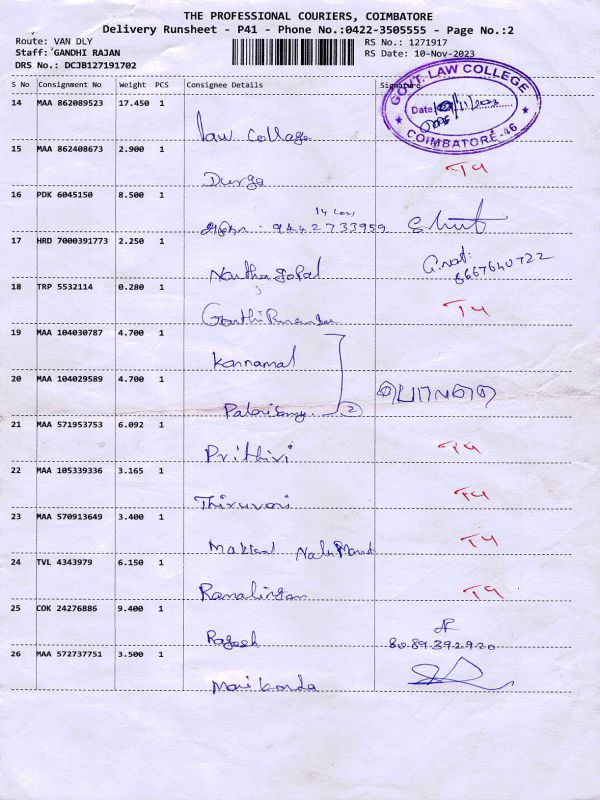 THE PROFESSIONAL COURIERS, COIMBATORE
Delivery Runsheet - P41 - Phone No.:0422-3505555 - Page No.:2
Route: VAN DLY
RS No.: 1271917
Staff: GANDHI RAJAN
RS Date: 10-Nov-2023
DRS No.: DCJB127191702
S No Consignment No Weight PCS Consignee Details Signature
GOVT. LAW COLLEGE
Date
COIMBATORE-46
14 MAA 862089523 17.450 1
Law College
15 MAA 862408673 2.900 1
Durga
16 PDK 6045150 8.500 1
9442733959
17 HRD 7000391773 2.250 1
Nantha gopal
8667640722
18 TRP 5532114 0.280 1
19 MAA 104030787 4.700 1
Kannamal
20 MAA 104029589 4.700 1
Palanisamy 2
21 MAA 571953753 6.092 1
Prithivi
22 MAA 105339336 3.165 1
23 MAA 570913649 3.400 1
24 TVL 4343979 6.150 1
Ramalingam
25 COK 24276886 9.400 1
Rajesh 8089392920
26 MAA 572737751 3.500 1